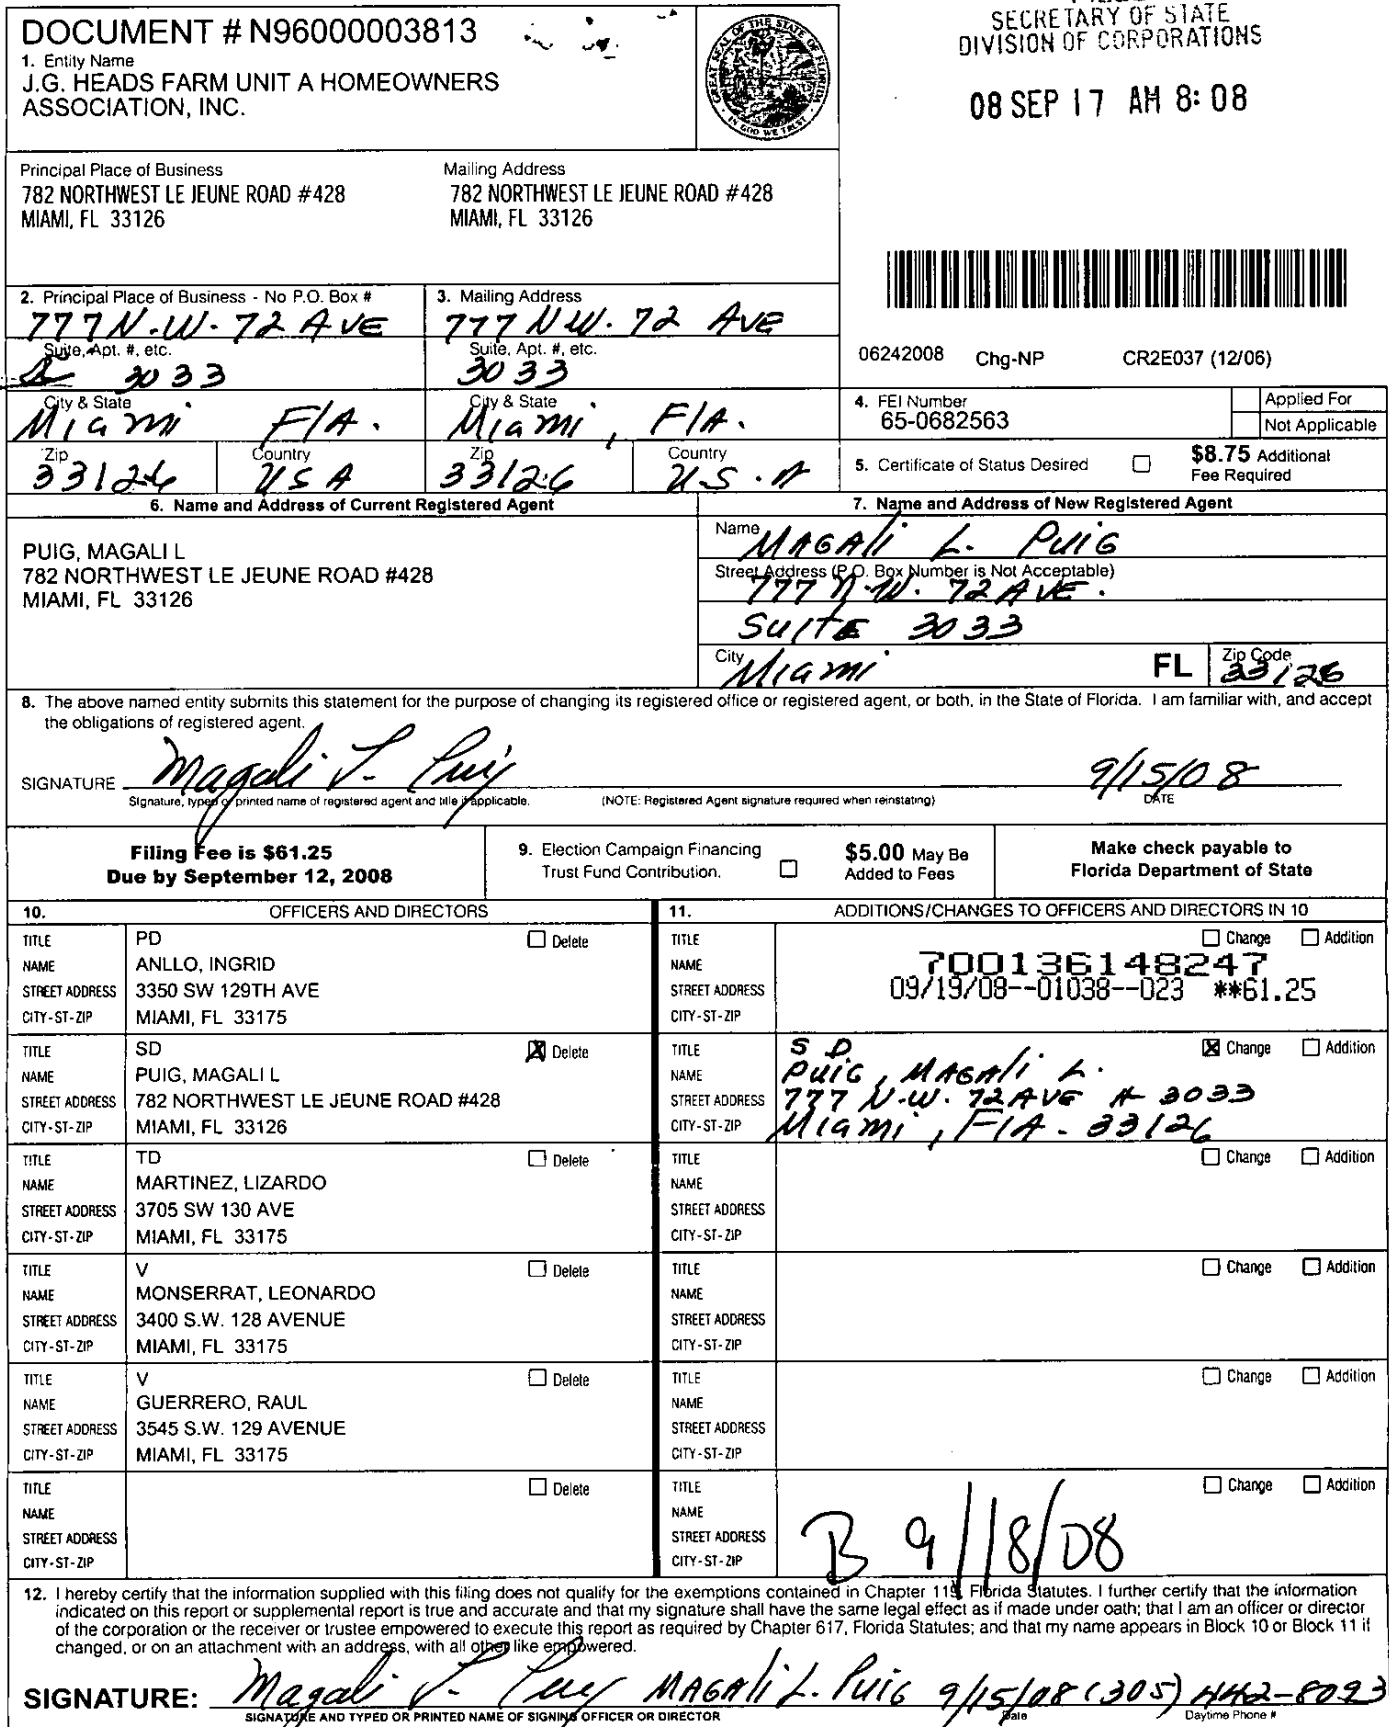 SECRETARY OF STATE
DIVISION OF CORPORATIONS
08 SEP 17 AM 8:08
DOCUMENT # N96000003813
1. Entity Name
J.G. HEADS FARM UNIT A HOMEOWNERS
ASSOCIATION, INC.
GREAT SEAL OF THE STATE OF FLORIDA
IN GOD WE TRUST
Principal Place of Business
782 NORTHWEST LE JEUNE ROAD #428
MIAMI, FL 33126
Mailing Address
782 NORTHWEST LE JEUNE ROAD #428
MIAMI, FL 33126
2. Principal Place of Business - No P.O. Box #
777 N.W. 72 AVE
Suite, Apt. #, etc.
3033
City & State
Miami FlA.
Zip
33126
Country
USA
3. Mailing Address
777 N.W. 72 AVE
Suite, Apt. #, etc.
3033
City & State
Miami, FlA.
Zip
33126
Country
U.S.A
06242008 Chg-NP CR2E037 (12/06)
4. FEI Number
65-0682563
Applied For
Not Applicable
5. Certificate of Status Desired
$8.75 Additional
Fee Required
6. Name and Address of Current Registered Agent
PUIG, MAGALI L
782 NORTHWEST LE JEUNE ROAD #428
MIAMI, FL 33126
7. Name and Address of New Registered Agent
Name MAGAli L. PUIG
Street Address (P.O. Box Number is Not Acceptable)
777 N.W. 72 AVE.
SUITE 3033
City Miami FL Zip Code 33126
8. The above named entity submits this statement for the purpose of changing its registered office or registered agent, or both, in the State of Florida. I am familiar with, and accept
the obligations of registered agent.
SIGNATURE Magali L. Puig 9/15/08
Signature, typed or printed name of registered agent and title if applicable. (NOTE: Registered Agent signature required when reinstating) DATE
Filing Fee is $61.25
Due by September 12, 2008
9. Election Campaign Financing
Trust Fund Contribution.
$5.00 May Be
Added to Fees
Make check payable to
Florida Department of State
10. OFFICERS AND DIRECTORS
TITLE PD Delete
NAME ANLLO, INGRID
STREET ADDRESS 3350 SW 129TH AVE
CITY-ST-ZIP MIAMI, FL 33175
TITLE SD X Delete
NAME PUIG, MAGALI L
STREET ADDRESS 782 NORTHWEST LE JEUNE ROAD #428
CITY-ST-ZIP MIAMI, FL 33126
TITLE TD Delete
NAME MARTINEZ, LIZARDO
STREET ADDRESS 3705 SW 130 AVE
CITY-ST-ZIP MIAMI, FL 33175
TITLE V Delete
NAME MONSERRAT, LEONARDO
STREET ADDRESS 3400 S.W. 128 AVENUE
CITY-ST-ZIP MIAMI, FL 33175
TITLE V Delete
NAME GUERRERO, RAUL
STREET ADDRESS 3545 S.W. 129 AVENUE
CITY-ST-ZIP MIAMI, FL 33175
TITLE Delete
NAME
STREET ADDRESS
CITY-ST-ZIP
11. ADDITIONS/CHANGES TO OFFICERS AND DIRECTORS IN 10
TITLE Change Addition
NAME 700136148247
STREET ADDRESS 09/19/08--01038--023 **61.25
CITY-ST-ZIP
TITLE S D X Change Addition
NAME PUIG, MAGAli L.
STREET ADDRESS 777 N.W. 72 AVE # 3033
CITY-ST-ZIP Miami, FlA. 33126
TITLE Change Addition
NAME
STREET ADDRESS
CITY-ST-ZIP
TITLE Change Addition
NAME
STREET ADDRESS
CITY-ST-ZIP
TITLE Change Addition
NAME
STREET ADDRESS
CITY-ST-ZIP
TITLE Change Addition
NAME
STREET ADDRESS B 9/18/08
CITY-ST-ZIP
12. I hereby certify that the information supplied with this filing does not qualify for the exemptions contained in Chapter 119, Florida Statutes. I further certify that the information
indicated on this report or supplemental report is true and accurate and that my signature shall have the same legal effect as if made under oath; that I am an officer or director
of the corporation or the receiver or trustee empowered to execute this report as required by Chapter 617, Florida Statutes; and that my name appears in Block 10 or Block 11 if
changed, or on an attachment with an address, with all other like empowered.
SIGNATURE: Magali L. Puig MAGAli L. Puig 9/15/08 (305) 442-8093
SIGNATURE AND TYPED OR PRINTED NAME OF SIGNING OFFICER OR DIRECTOR Date Daytime Phone #